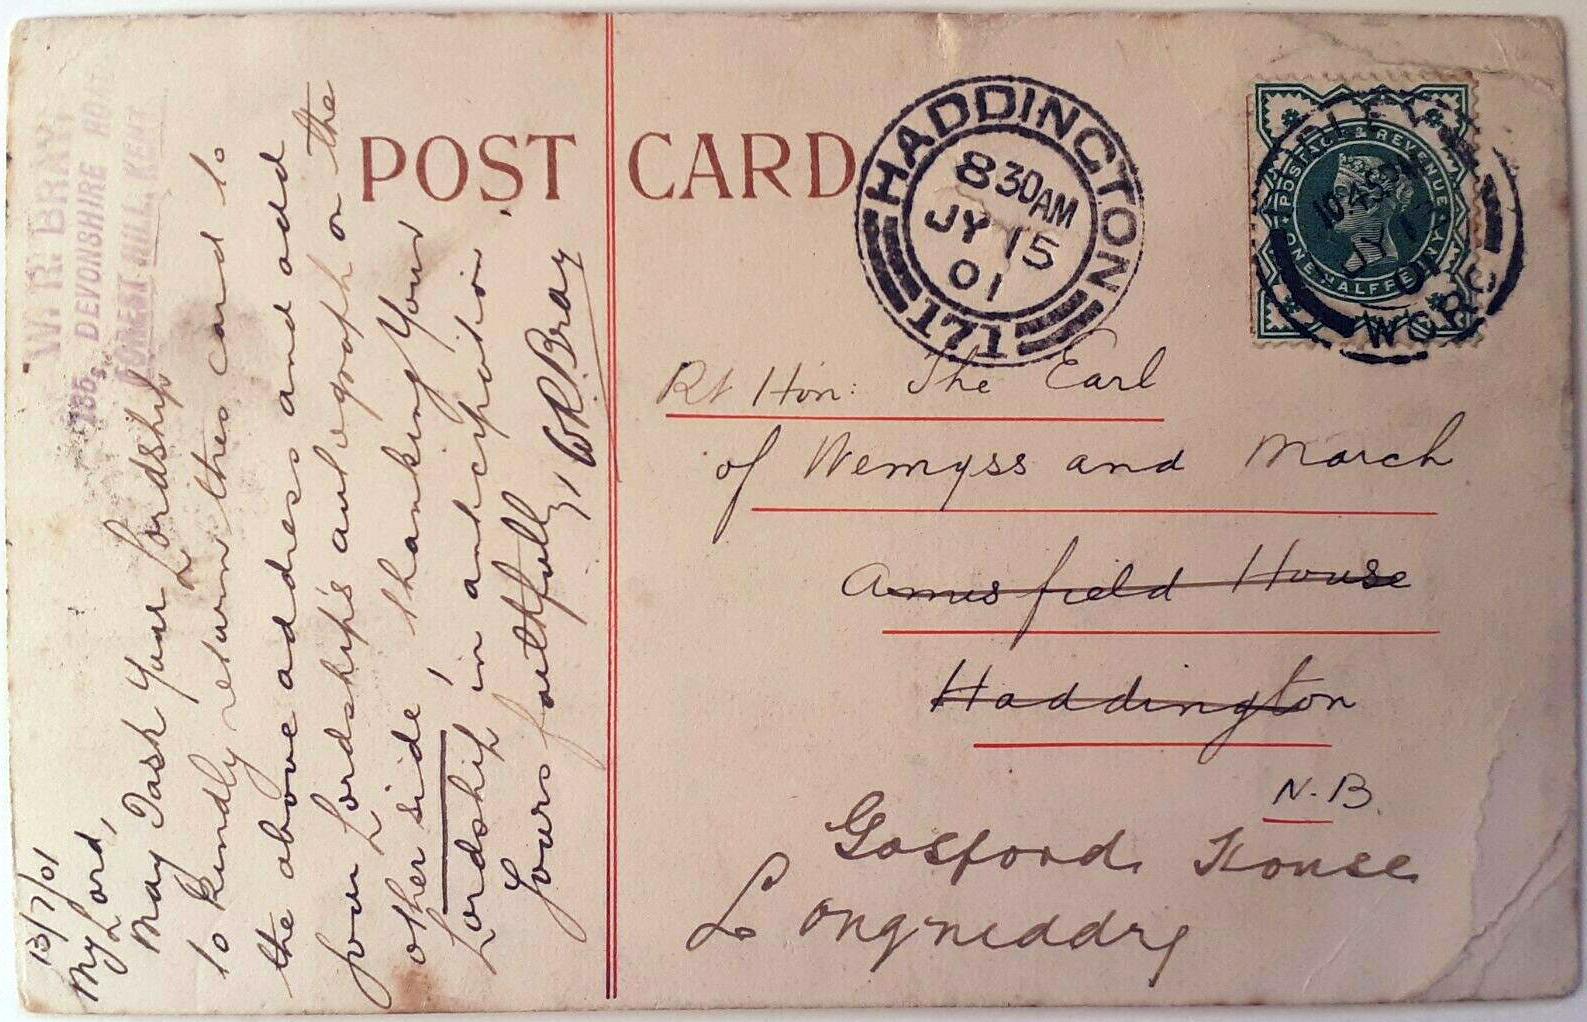 W. R. BRAY,
186, DEVONSHIRE ROAD
FOREST HILL, KENT
13/7/01
My Lord,
May I ask Your Lordship
to kindly return this card to
the above address and add
your Lordship's autograph on the
other side, thanking Your
Lordship in anticipation
Yours faithfully,
W.R. Bray
POST CARD
HADDINGTON
8 30AM
JY 15
01
171
POSTAGE & REVENUE
ONE HALFPENNY
10.45PM
JY 13
01
WORC
Rt Hon: The Earl
of Wemyss and March
Amisfield House
Haddington
N.B.
Gosford House
Longniddry